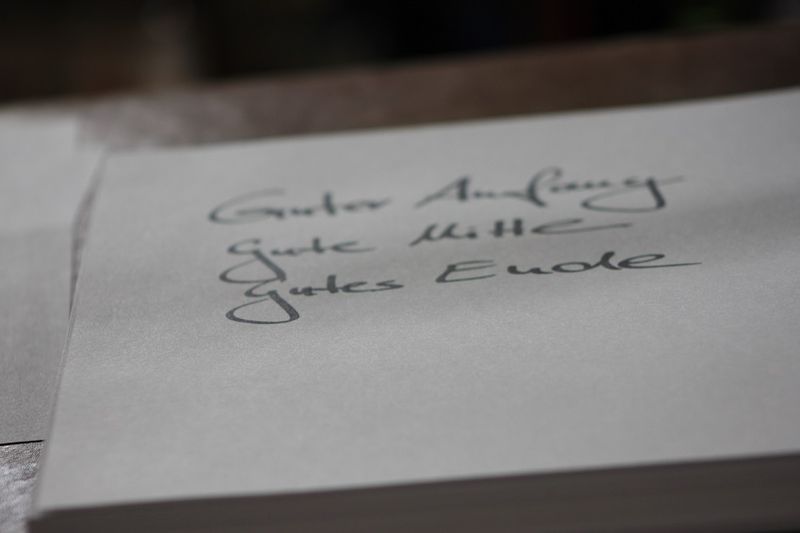 Guter Anfang
gute Mitte
gutes Ende